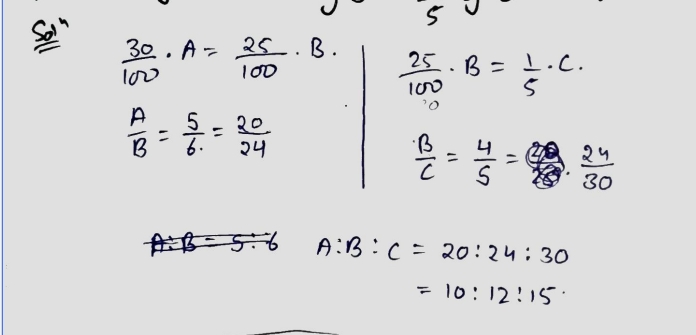 5
Solⁿ
30/100 . A = 25/100 . B.
A/B = 5/6. = 20/24
25/100 . B = 1/5 . C.
B/C = 4/5 = 24/30
A:B = 5:6
A:B:C = 20:24:30
= 10:12:15.